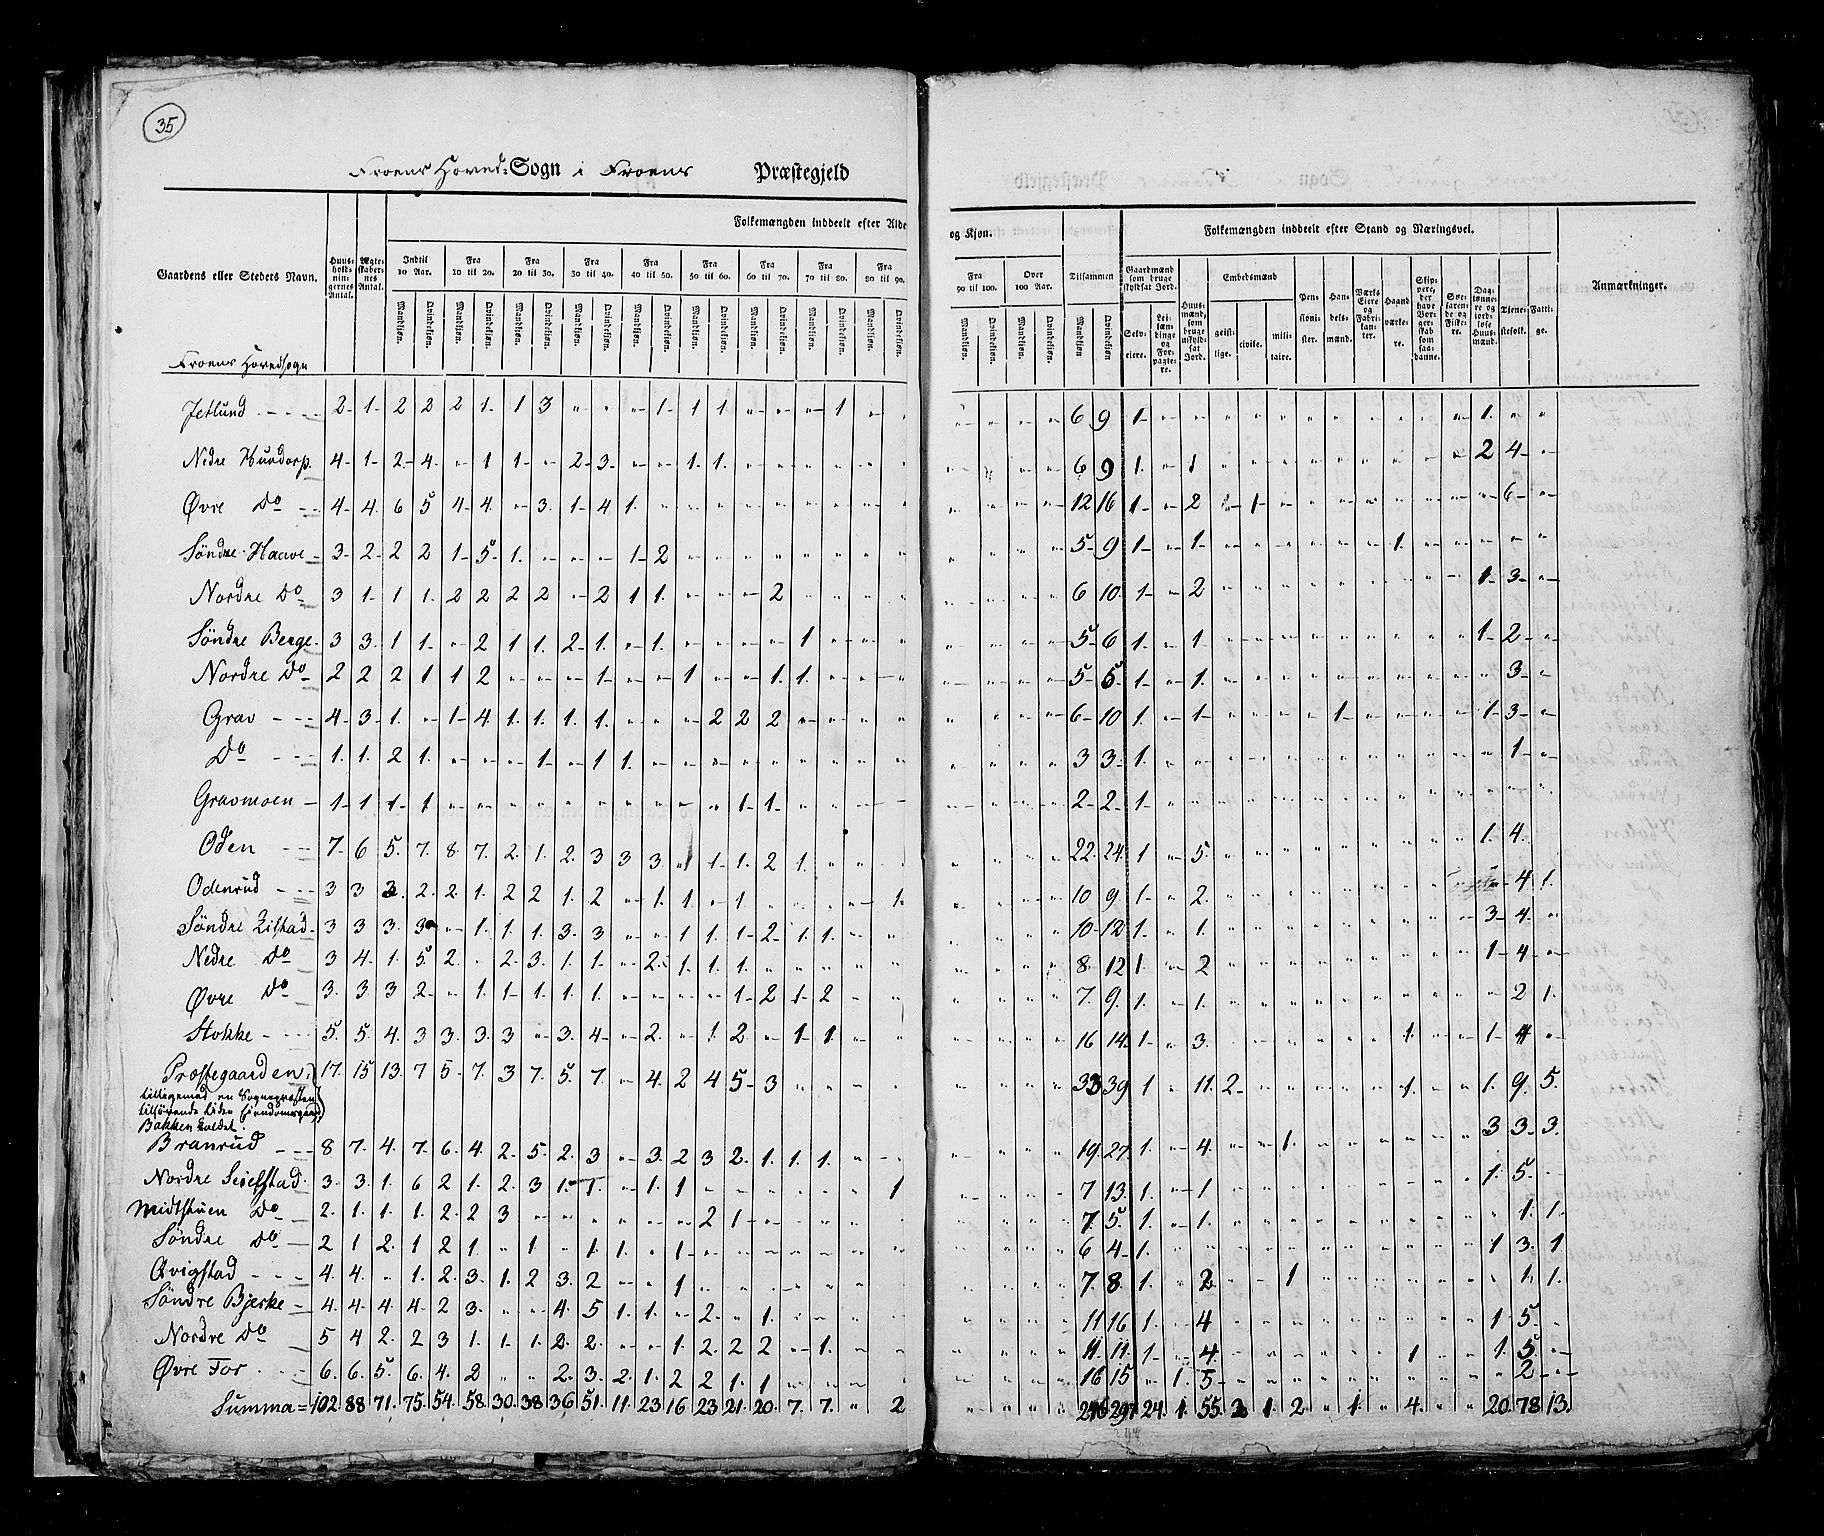 35
Froens Hoved-Sogn i Froens Præstegjeld
Folkemængden inddeelt efter Alde
og Kjøn.
Folkemængden inddeelt efter Stand og Næringsvei.
Gaardens eller Stedets Navn.
Huusholdningernes Antal.
Ægteskabernes Antal.
Indtil 10 Aar. Fra 10 til 20. Fra 20 til 30. Fra 30 til 40. Fra 40 til 50. Fra 50 til 60. Fra 60 til 70. Fra 70 til 80. Fra 80 til 90.
Fra 90 til 100. Over 100 Aar. Tilsammen
Mandkjøn. Qvindekjøn.
Gaardmænd som bruge skyldsat Jord. Selveiere. Leilændinge og Forpagtere.
Huusmænd, som bruge uskyldsat Jord.
Embedsmænd geistlige. civile. militaire.
Pensionister. Handelsmænd. Værks Eiere og Fabrikanter. Haandværkere.
Skippere, der have Borgerskab som saadanne.
Søefarende og Fiskere.
Daglønnere og jordløse Huusmænd.
Tjenestefolk. Fattige.
Anmærkninger.
Froens Hovedsogn
Jetlund 2 1 2 2 2 1 1 3 " " " 1 1 1 " " " 1 " 6 9 1 1
Nedre Hundorp 4 1 2 4 " 1 1 " 2 3 " " 1 1 6 9 1 " 1 2 4
Øvre Do 4 4 6 5 4 4 " 3 1 4 1 12 16 1 " 2 1 6
Søndre Haave 3 2 2 2 1 5 1 " " " 1 2 5 9 1 " 1 1
Nordre Do 3 1 1 1 2 2 2 2 " 2 1 1 " " " 2 6 10 1 " 2 1 3
Søndre Berge 3 3 1 1 " 2 1 1 2 1 " 1 " " " " 1 5 6 1 " 1 1 2
Nordre Do 2 2 2 1 1 2 " " " 1 " " 1 " " 1 1 5 5 1 " 1 3
Grav 4 3 1 " 1 4 1 1 1 1 " " " 2 2 2 6 10 1 " 1 1 1 3
Do 1 1 2 1 " " " 1 " 1 1 3 3 1 1
Gravmoen 1 1 1 1 " " " " " " " " " " 1 1 2 2 1
Oden 7 6 5 7 8 7 2 1 2 3 3 3 " 1 1 2 1 22 24 1 " 5 1 4
Odenrud 3 3 3 2 2 1 2 2 1 2 " 1 1 " 1 1 10 9 1 " 2 4 1
Søndre Listad 3 3 3 3 " 1 1 1 3 3 " " 1 1 1 2 1 1 10 12 1 " 1 3 4
Nedre Do 3 4 1 5 2 " 2 3 1 1 " 2 1 1 1 8 12 1 " 2 1 4
Øvre Do 3 3 3 2 " 1 1 1 1 1 " " " " 1 2 1 2 7 9 1 " 1 2 1
Stokke 5 5 4 3 3 3 3 " 3 4 " 2 " 1 2 " 1 1 16 14 1 " 3 1 1 4
Prostegaarden 17 15 13 7 5 7 3 7 5 7 " 4 2 4 5 3 33 39 1 " 11 2 1 1 9 5
tilligemed en Sognepræsten
tilhørende liden Eiendomsgaard
Bakken kaldet.
Branrud 8 7 4 7 6 4 2 5 2 3 " 3 2 3 2 1 1 1 19 27 1 " 4 1 3 3 3
Nordre Seielstad 3 3 1 6 2 1 2 3 1 1 " 1 1 1 7 13 1 " 1 1 5
Midtstuen Do 2 1 1 1 2 2 3 " " " " " " 2 1 7 5 1 " 1 1 1
Søndre Do 2 1 2 1 2 1 " 1 " 1 1 " 1 6 4 1 1 3 1
Qvigstad 4 4 " 1 2 3 1 2 3 2 " " 1 7 8 1 " 2 1 1 1
Søndre Bjerke 4 4 4 4 2 3 " " 4 5 1 1 " 2 " 1 11 16 1 " 4 1 5
Nordre Do 5 4 2 2 3 1 1 1 2 2 " 1 2 2 2 " 1 11 11 1 " 4 1 1 5
Øvre For 6 6 5 6 4 2 " " 2 3 2 1 2 2 1 1 16 15 " 1 5 2
Summa = 102 88 71 75 54 58 30 38 36 51 11 23 16 23 21 20 7 7 " 2 297 24 1 55 2 1 2 " 1 " 4 " " 20 78 13